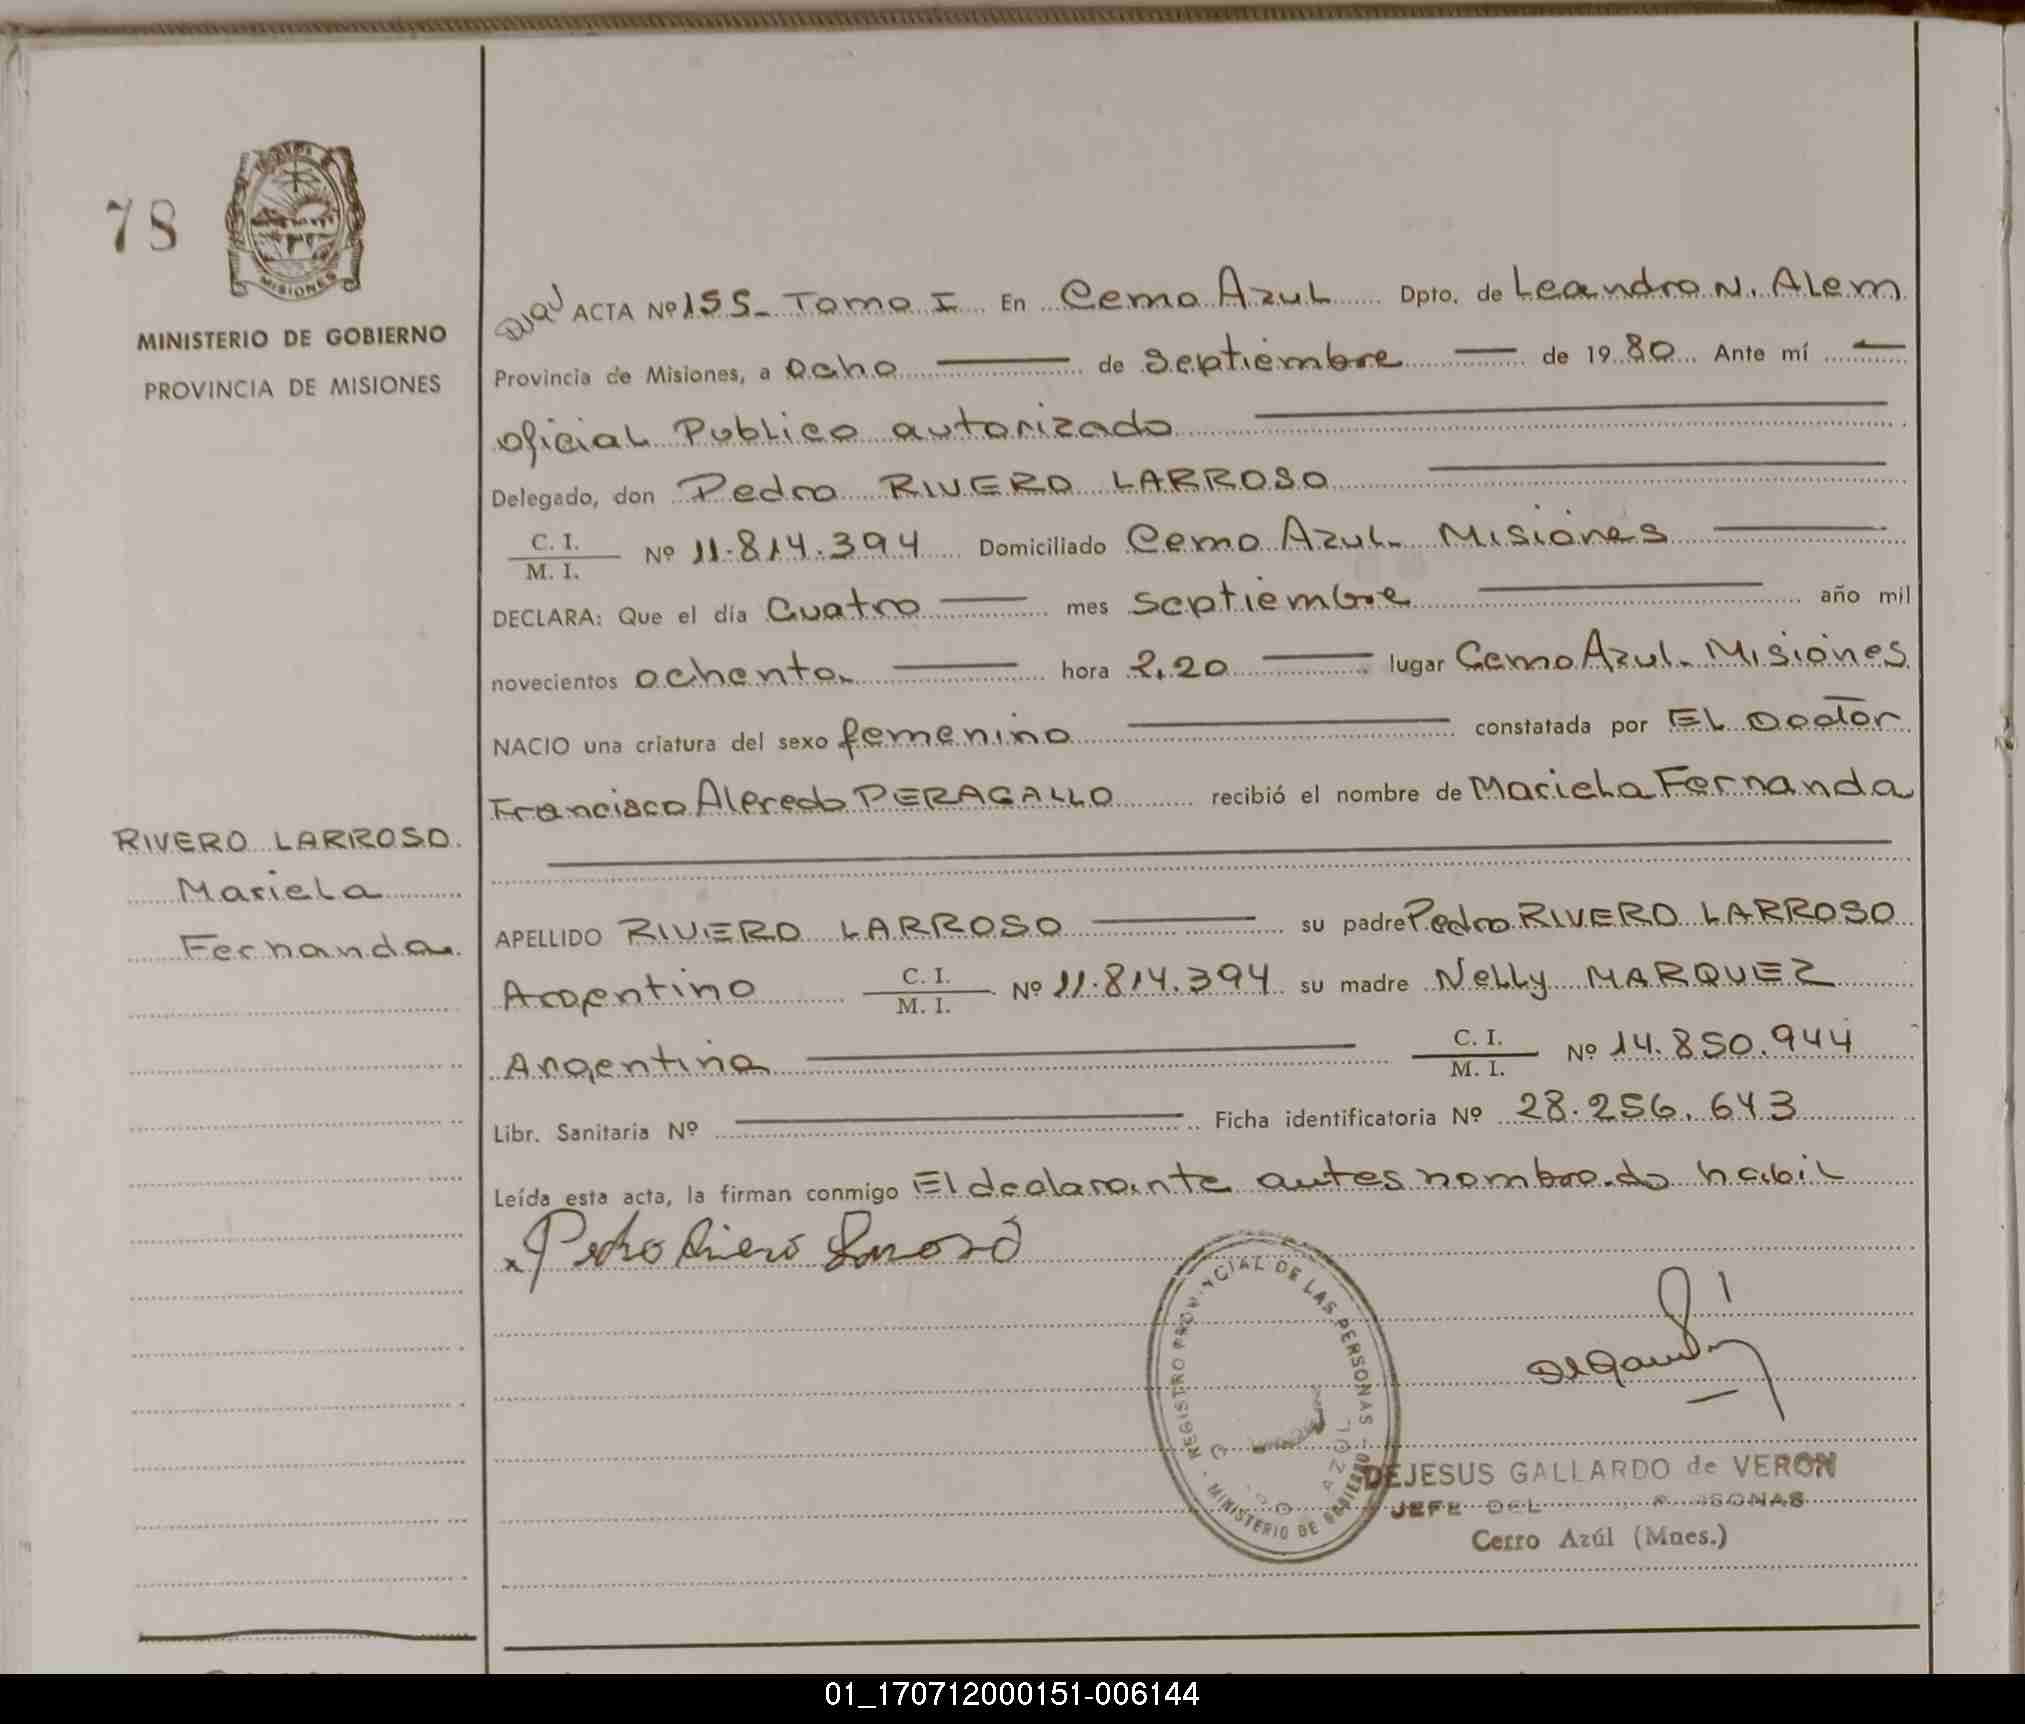 78
MISIONES
MINISTERIO DE GOBIERNO
PROVINCIA DE MISIONES
RIVERO LARROSO.
Mariela
Fernanda.
ACTA Nº 155_ Tomo I En Cerro Azul Dpto. de Leandro N. Alem
Provincia de Misiones, a ocho de septiembre de 1980 Ante mí
oficial Publico autorizado
Delegado, don Pedro RIVERO LARROSO
C. I.
M. I.
Nº 11.814.394 Domiciliado Cerro Azul. Misiones
DECLARA: Que el día Cuatro mes septiembre año mil
novecientos ochenta. hora 2.20 lugar Cerro Azul. Misiones
NACIO una criatura del sexo femenino constatada por EL Doctor
Francisco Alfredo PERAGALLO recibió el nombre de Mariela Fernanda
APELLIDO RIVERO LARROSO su padre Pedro RIVERO LARROSO
Argentino C. I. M. I. Nº 11.814.394 su madre Nelly MARQUEZ
Argentina C. I. M. I. Nº 14.850.944
Libr. Sanitaria Nº Ficha identificatoria Nº 28.256.643
Leída esta acta, la firman conmigo El declarante antes nombrado habil
x Pedro Rivero Larroso
REGISTRO PROVINCIAL DE LAS PERSONAS - MINISTERIO DE GOBIERNO
AZUL
DEJESUS GALLARDO de VERON
JEFE DEL
Cerro Azúl (Mnes.)
01_170712000151-006144